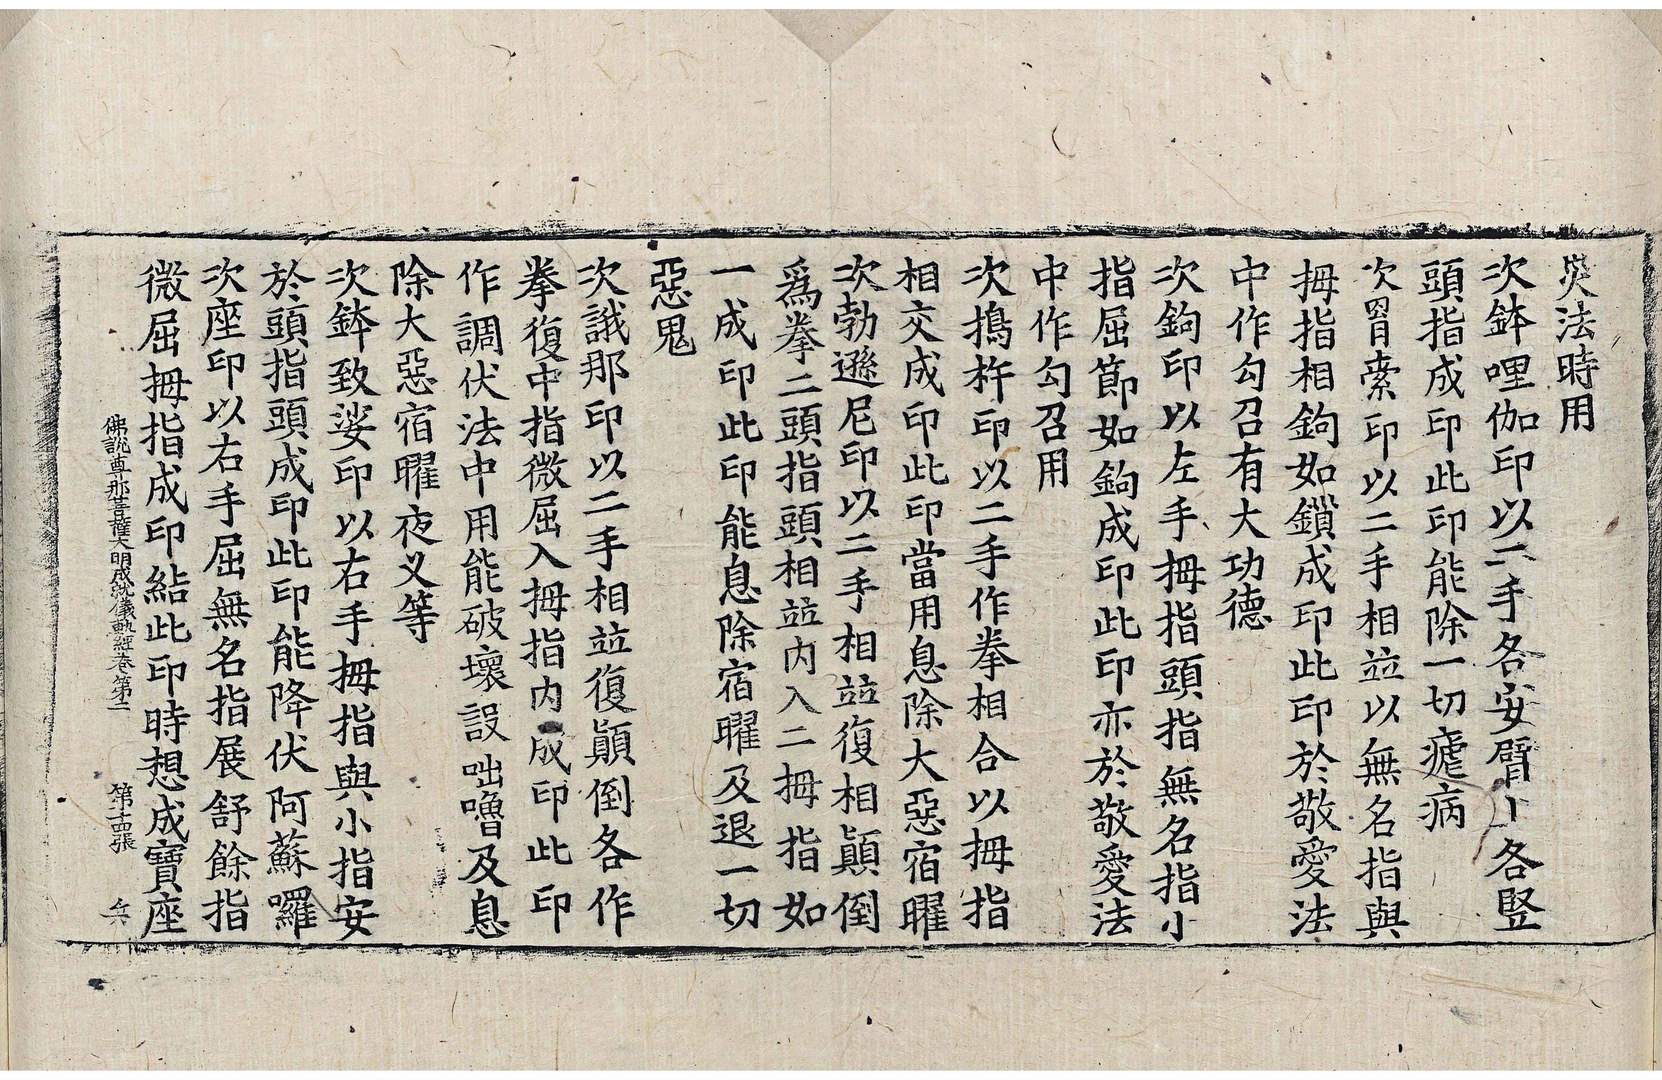 災法時用
次鉢哩伽印以二手各安臂上各竪
頭指成印此印能除一切瘧病
次罥索印以二手相並以無名指與
拇指相鉤如鎖成印此印於敬愛法
中作勾召有大功德
次鉤印以左手拇指頭指無名指小
指屈節如鉤成印此印亦於敬愛法
中作勾召用
次搗杵印以二手作拳相合以拇指
相交成印此印當用息除大惡宿曜
次勃遜尼印以二手相並復相顛倒
爲拳二頭指頭相並內入二拇指如
一成印此印能息除宿曜及退一切
惡鬼
次誐那印以二手相並復顛倒各作
拳復中指微屈入拇指內成印此印
作調伏法中用能破壞設咄嚕及息
除大惡宿曜夜叉等
次鉢致娑印以右手拇指與小指安
於頭指頭成印此印能降伏阿蘇囉
次座印以右手屈無名指展舒餘指
微屈拇指成印結此印時想成寶座
佛說尊那菩薩大明成就儀軌經卷第二 第十四張 兵